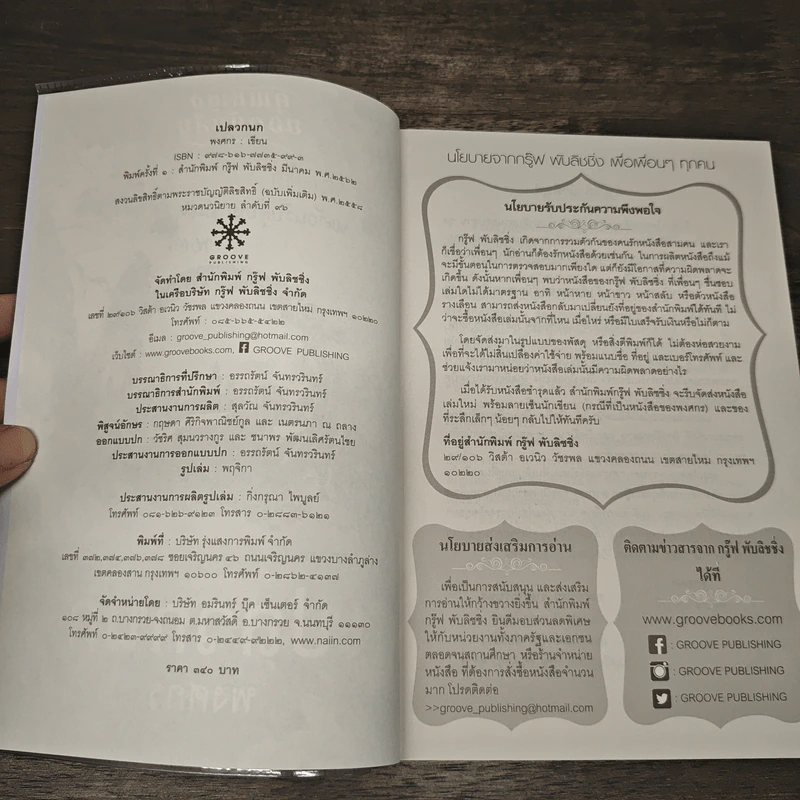 เปลวกนก
พงศกร : เขียน
ISBN : ๙๗๘-๖๑๖-๗๗๓๕-๙๙-๓
พิมพ์ครั้งที่ ๑ : สำนักพิมพ์ กรู๊ฟ พับลิชชิ่ง มีนาคม พ.ศ.๒๕๖๒
สงวนลิขสิทธิ์ตามพระราชบัญญัติลิขสิทธิ์ (ฉบับเพิ่มเติม) พ.ศ.๒๕๕๘
หมวดนวนิยาย ลำดับที่ ๙๖
GROOVE
PUBLISHING
จัดทำโดย สำนักพิมพ์ กรู๊ฟ พับลิชชิ่ง
ในเครือบริษัท กรู๊ฟ พับลิชชิ่ง จำกัด
เลขที่ ๒๙/๑๐๖ วิสต้า อเวนิว วัชรพล แขวงคลองถนน เขตสายไหม กรุงเทพฯ ๑๐๒๒๐
โทรศัพท์ : ๐๘๕-๖๖๕-๕๔๒๒
อีเมล : groove_publishing@hotmail.com
เว็บไซต์ : www.groovebooks.com, GROOVE PUBLISHING
บรรณาธิการที่ปรึกษา : อรรถรัตน์ จันทรวรินทร์
บรรณาธิการสำนักพิมพ์ : อรรถรัตน์ จันทรวรินทร์
ประสานงานการผลิต : สุลวัณ จันทรวรินทร์
พิสูจน์อักษร : กฤษดา ศิริกิจพาณิชย์กูล และ เนตรนภา ณ ถลาง
ออกแบบปก : วัชริศ สุมนวรางกูร และ ชนาพร พัฒนเลิศรัตนไชย
ประสานงานการออกแบบปก : อรรถรัตน์ จันทรวรินทร์
รูปเล่ม : พฤจิกา
ประสานงานการผลิตรูปเล่ม : กิ่งกรุณา ไพบูลย์
โทรศัพท์ ๐๘๑-๖๒๖-๙๑๒๓ โทรสาร ๐-๒๘๘๓-๖๑๒๑
พิมพ์ที่ : บริษัท รุ่งแสงการพิมพ์ จำกัด
เลขที่ ๓๗๒,๓๗๔,๓๗๖,๓๗๘ ซอยเจริญนคร ๔๖ ถนนเจริญนคร แขวงบางลำภูล่าง
เขตคลองสาน กรุงเทพฯ ๑๐๖๐๐ โทรศัพท์ ๐-๒๘๖๒-๔๑๓๗
จัดจำหน่ายโดย : บริษัท อมรินทร์ บุ๊ค เซ็นเตอร์ จำกัด
๑๐๘ หมู่ที่ ๒ ถ.บางกรวย-จงถนอม ต.มหาสวัสดิ์ อ.บางกรวย จ.นนทบุรี ๑๑๑๓๐
โทรศัพท์ ๐-๒๔๒๓-๙๙๙๙ โทรสาร ๐-๒๔๔๙-๙๒๒๒, www.naiin.com
ราคา ๓๔๐ บาท
นโยบายจากกรู๊ฟ พับลิชชิ่ง เพื่อเพื่อนๆ ทุกคน
นโยบายรับประกันความพึงพอใจ
กรู๊ฟ พับลิชชิ่ง เกิดจากการรวมตัวกันของคนรักหนังสือสามคน และเรา
ก็เชื่อว่าเพื่อนๆ นักอ่านก็ต้องรักหนังสือด้วยเช่นกัน ในการผลิตหนังสือถึงแม้
จะมีขั้นตอนในการตรวจสอบมากเพียงใด แต่ก็ยังมีโอกาสที่ความผิดพลาดจะ
เกิดขึ้น ดังนั้นหากเพื่อนๆ พบว่าหนังสือของกรู๊ฟ พับลิชชิ่ง ที่เพื่อนๆ ชื่นชอบ
เล่มใดไม่ได้มาตรฐาน อาทิ หน้าหาย หน้าขาว หน้าสลับ หรือตัวหนังสือ
รางเลือน สามารถส่งหนังสือกลับมาเปลี่ยนยังที่อยู่ของสำนักพิมพ์ได้ทันที ไม่
ว่าจะซื้อหนังสือเล่มนั้นจากที่ไหน เมื่อไหร่ หรือมีใบเสร็จรับเงินหรือไม่ก็ตาม
โดยจัดส่งมาในรูปแบบของพัสดุ หรือสิ่งตีพิมพ์ก็ได้ ไม่ต้องห่อสวยงาม
เพื่อที่จะได้ไม่สิ้นเปลืองค่าใช้จ่าย พร้อมแนบชื่อ ที่อยู่ และเบอร์โทรศัพท์ และ
ช่วยแจ้งเรามาหน่อยว่าหนังสือเล่มนั้นมีความผิดพลาดอย่างไร
เมื่อได้รับหนังสือชำรุดแล้ว สำนักพิมพ์กรู๊ฟ พับลิชชิ่ง จะรีบจัดส่งหนังสือ
เล่มใหม่ พร้อมลายเซ็นนักเขียน (กรณีที่เป็นหนังสือของพงศกร) และของ
ที่ระลึกเล็กๆ น้อยๆ กลับไปให้ทันทีครับ
ที่อยู่สำนักพิมพ์ กรู๊ฟ พับลิชชิ่ง
๒๙/๑๐๖ วิสต้า อเวนิว วัชรพล แขวงคลองถนน เขตสายไหม กรุงเทพฯ
๑๐๒๒๐
นโยบายส่งเสริมการอ่าน
เพื่อเป็นการสนับสนุน และส่งเสริม
การอ่านให้กว้างขวางยิ่งขึ้น สำนักพิมพ์
กรู๊ฟ พับลิชชิ่ง ยินดีมอบส่วนลดพิเศษ
ให้กับหน่วยงานทั้งภาครัฐและเอกชน
ตลอดจนสถานศึกษา หรือร้านจำหน่าย
หนังสือ ที่ต้องการสั่งซื้อหนังสือจำนวน
มาก โปรดติดต่อ
>>groove_publishing@hotmail.com
ติดตามข่าวสารจาก กรู๊ฟ พับลิชชิ่ง
ได้ที่
www.groovebooks.com
: GROOVE PUBLISHING
: GROOVE PUBLISHING
: GROOVE PUBLISHING